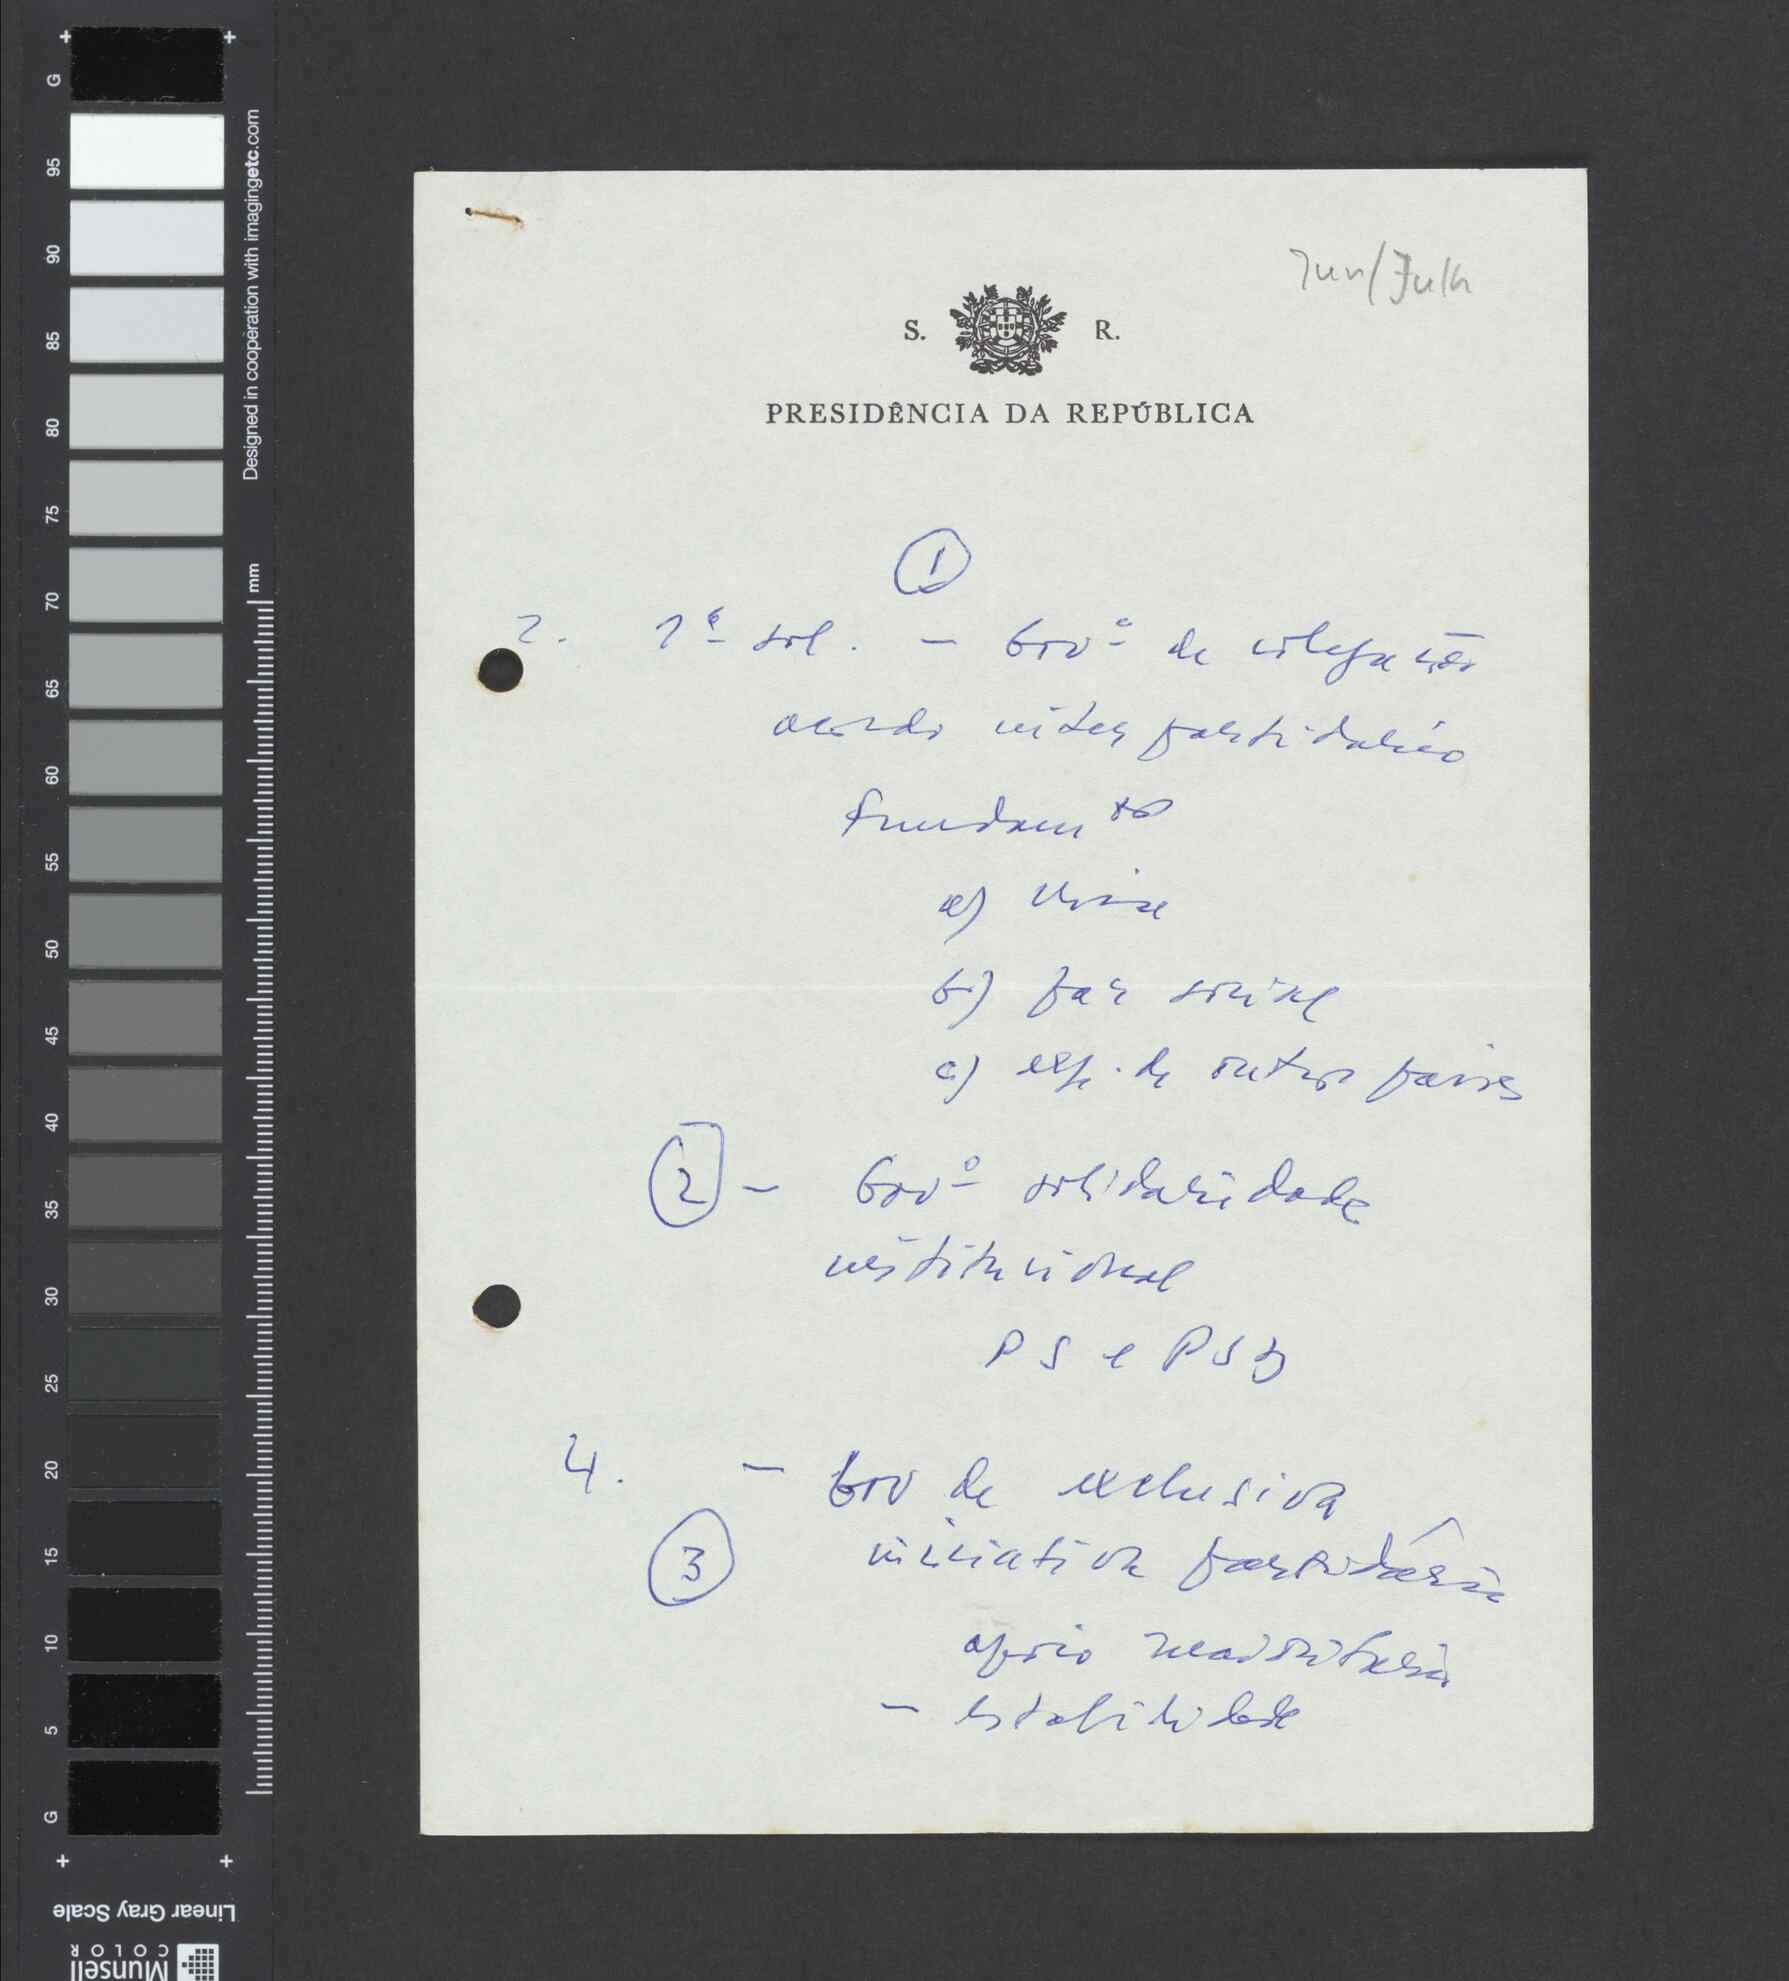 Jun/Julh
S. R.
PRESIDÊNCIA DA REPÚBLICA
1
2. 1ª sol. - Govº de coligação
acordo inter partidário
Fundamtos
a) crise
b) paz social
c) exp. de outros países
2 - Govº solidariedade
institucional
PS e PSD
4. - Gov de exclusiva
3 iniciativa partidária
apoio maioritário
- estabilidade
G
95
90
85
80
75
70
65
60
55
50
45
40
35
30
25
20
15
10
5
G
Designed in cooperation with imagingetc.com
mm
Linear Gray Scale
Munsell
COLOR